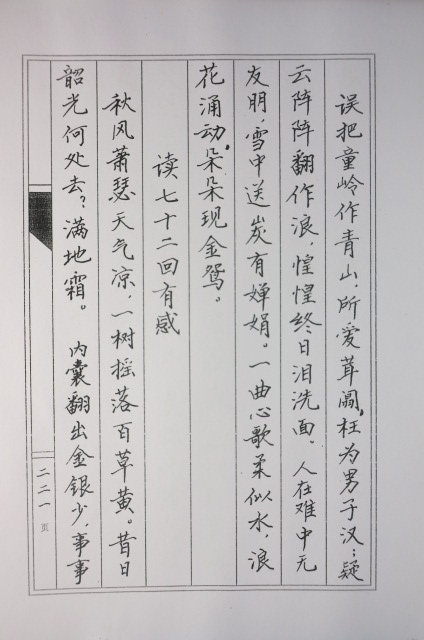 误把童岭作青山，所爱茸阘，枉为男子汉；疑
云阵阵翻作浪，惶惶终日泪洗面。人在难中无
友朋，雪中送炭有婵娟。一曲心歌柔似水，浪
花涌动，朵朵现金鸳。
读七十二回有感
秋风萧瑟天气凉，一树摇落百草黄。昔日
韶光何处去？满地霜。 内囊翻出金银少，事事
二二一页